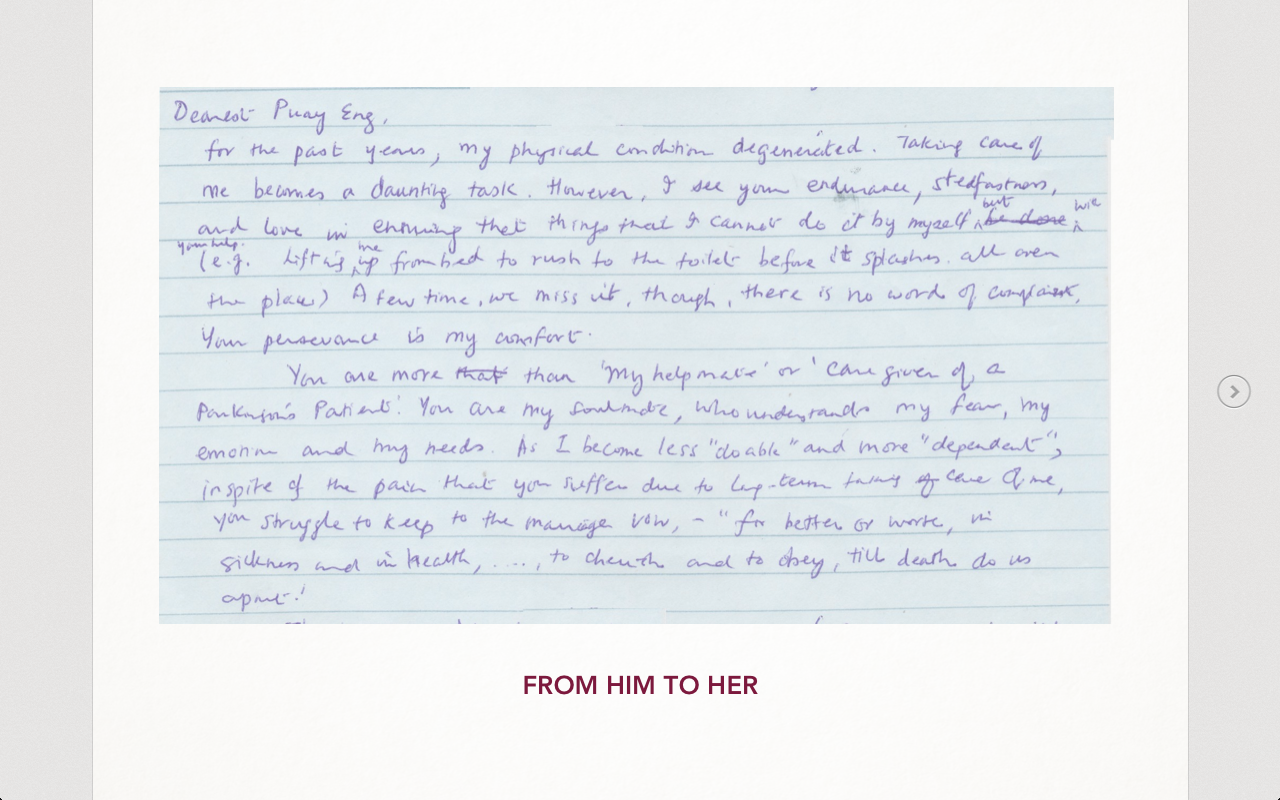 Dearest Puay Eng,
for the past years, my physical condition degenerated. Taking care of
me becomes a daunting task. However, I see your endurance, stedfastness,
and love in ensuring that things that I cannot do it by myself but be done with
your help.
(e.g. lifting me up from bed to rush to the toilet before it splashes all over
the place) A few time, we miss it, though, there is no word of complaint,
Your perseverance is my comfort.
You are more that than 'My helpmate' or 'Care giver of a
Parkinson's Patient'. You are my soulmate, who understands my fear, my
emotion and my needs. As I become less "doable" and more "dependent",
inspite of the pain that you suffer due to long-term taking of care of me,
you struggle to keep to the marriage vow, - "for better or worse, in
sickness and in health, ...., to cherish and to obey, till death do us
apart."
FROM HIM TO HER